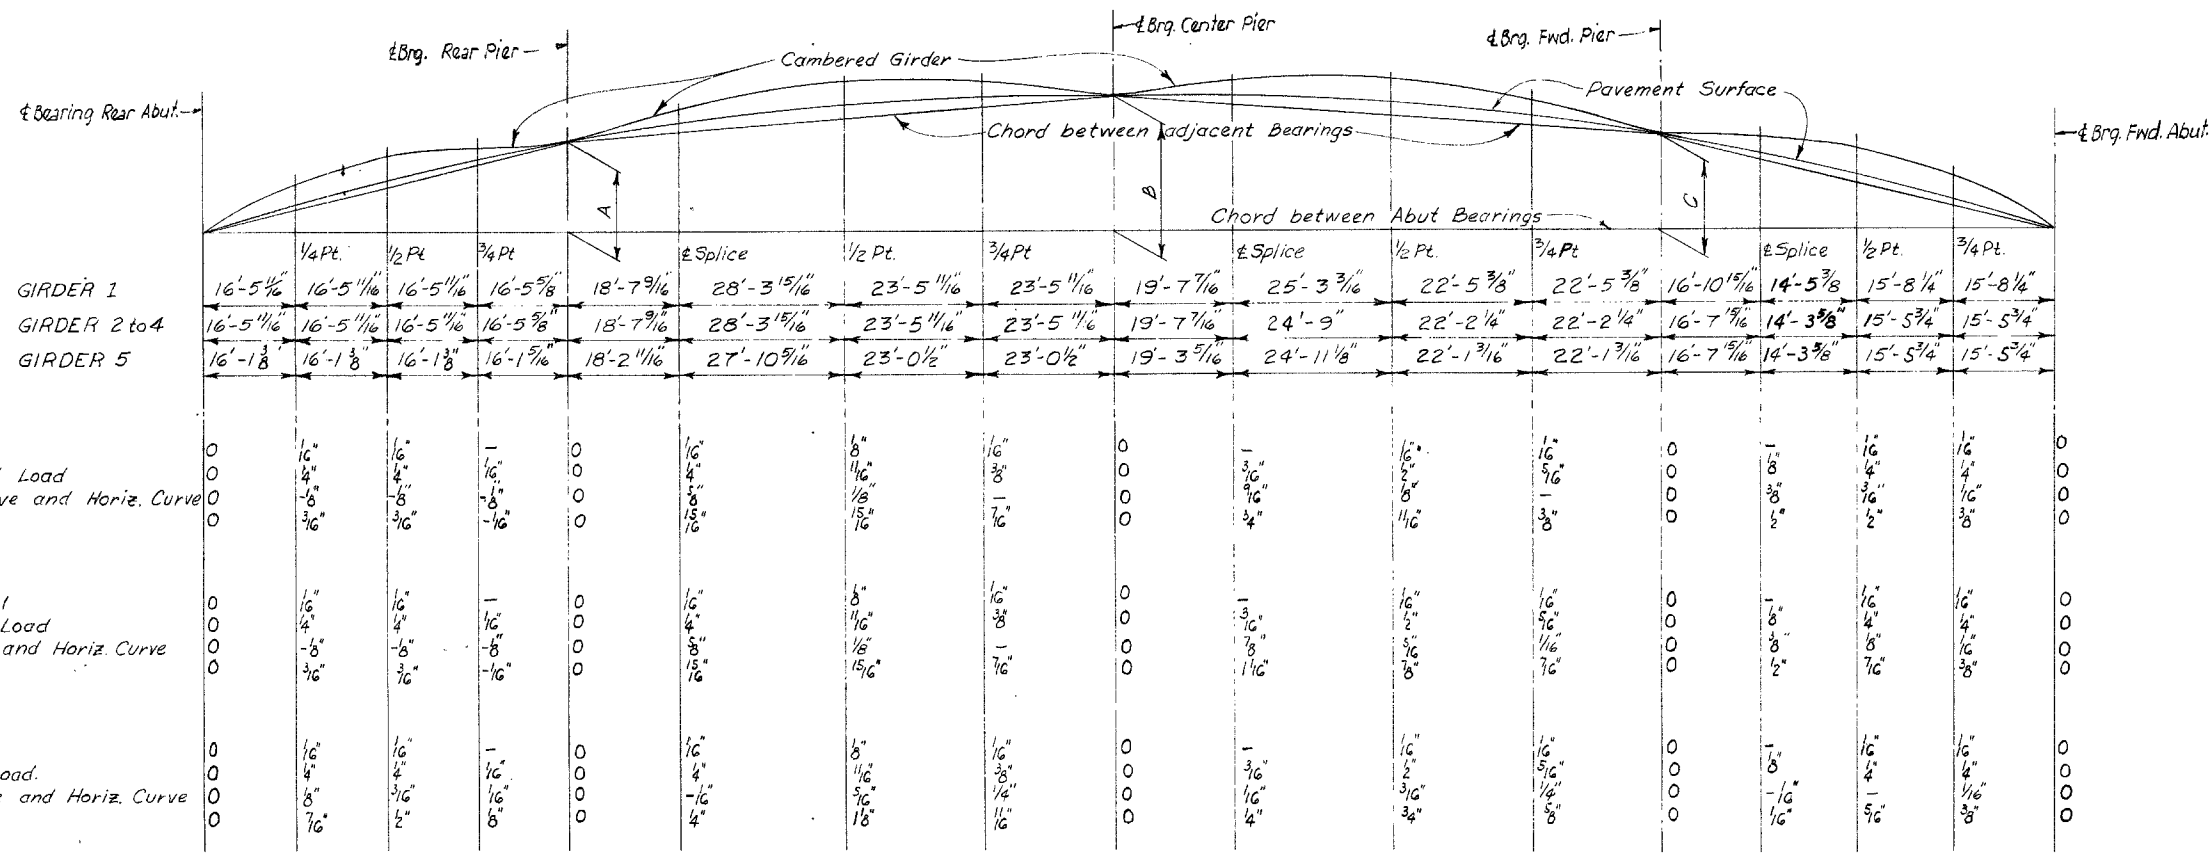 ℄ Brg. Center Pier
℄ Brg. Rear Pier
℄ Brg. Fwd. Pier
Cambered Girder
Pavement Surface
℄ Bearing Rear Abut.
Chord between adjacent Bearings
℄ Brg. Fwd. Abut.
A
B
C
Chord between Abut Bearings
1/4 Pt. 1/2 Pt 3/4 Pt ℄ Splice 1/2 Pt. 3/4 Pt ℄ Splice 1/2 Pt. 3/4 Pt ℄ Splice 1/2 Pt. 3/4 Pt.
GIRDER 1 16'-5 11/16" 16'-5 11/16" 16'-5 11/16" 16'-5 5/8" 18'-7 9/16" 28'-3 15/16" 23'-5 11/16" 23'-5 11/16" 19'-7 7/16" 25'-3 3/16" 22'-5 3/8" 22'-5 3/8" 16'-10 15/16" 14'-5 3/8 15'-8 1/4" 15'-8 1/4"
GIRDER 2 to 4 16'-5 11/16" 16'-5 11/16" 16'-5 11/16" 16'-5 5/8" 18'-7 9/16" 28'-3 15/16" 23'-5 11/16" 23'-5 11/16" 19'-7 7/16" 24'-9" 22'-2 1/4" 22'-2 1/4" 16'-7 15/16" 14'-3 5/8" 15'-5 3/4" 15'-5 3/4"
GIRDER 5 16'-1 3/8" 16'-1 3/8" 16'-1 3/8" 16'-1 5/16" 18'-2 11/16" 27'-10 5/16" 23'-0 1/2" 23'-0 1/2" 19'-3 5/16" 24'-11 1/8" 22'-1 3/16" 22'-1 3/16" 16'-7 15/16" 14'-3 5/8" 15'-5 3/4" 15'-5 3/4"
0 1/16" 1/16" - 0 1/16" 1/8" 1/16" 0 - 1/16" 1/16" 0 - 1/16" 1/16" 0
Load 0 1/4" 1/4" 1/16" 0 1/4" 11/16" 3/8" 0 3/16" 1/2" 5/16" 0 1/8" 1/4" 1/4" 0
and Horiz. Curve 0 -1/8" -1/8" -1/8" 0 5/8" 1/8" - 0 9/16" 1/8" - 0 3/8" 3/16" 1/16" 0
0 3/16" 3/16" -1/16" 0 15/16" 15/16" 7/16" 0 3/4" 11/16" 3/8" 0 1/2" 1/2" 3/8" 0
0 1/16" 1/16" - 0 1/16" 1/8" 1/16" 0 - 1/16" 1/16" 0 - 1/16" 1/16" 0
Load 0 1/4" 1/4" 1/16" 0 1/4" 11/16" 3/8" 0 3/16" 1/2" 5/16" 0 1/8" 1/4" 1/4" 0
and Horiz. Curve 0 -1/8" -1/8" -1/8" 0 5/8" 1/8" - 0 7/8" 5/16" 1/16" 0 3/8" 1/8" 1/16" 0
0 3/16" 3/16" -1/16" 0 15/16" 15/16" 7/16" 0 1 1/16" 7/8" 7/16" 0 1/2" 7/16" 3/8" 0
0 1/16" 1/16" - 0 1/16" 1/8" 1/16" 0 - 1/16" 1/16" 0 - 1/16" 1/16" 0
oad. 0 1/4" 1/4" 1/16" 0 1/4" 11/16" 3/8" 0 3/16" 1/2" 5/16" 0 1/8" 1/4" 1/4" 0
and Horiz. Curve 0 1/8" 3/16" 1/16" 0 -1/16" 5/16" 1/4" 0 1/16" 3/16" 1/4" 0 -1/16" - 1/16" 0
0 7/16" 1/2" 1/8" 0 1/4" 1 1/8" 11/16" 0 1/4" 3/4" 5/8" 0 1/16" 5/16" 3/8" 0